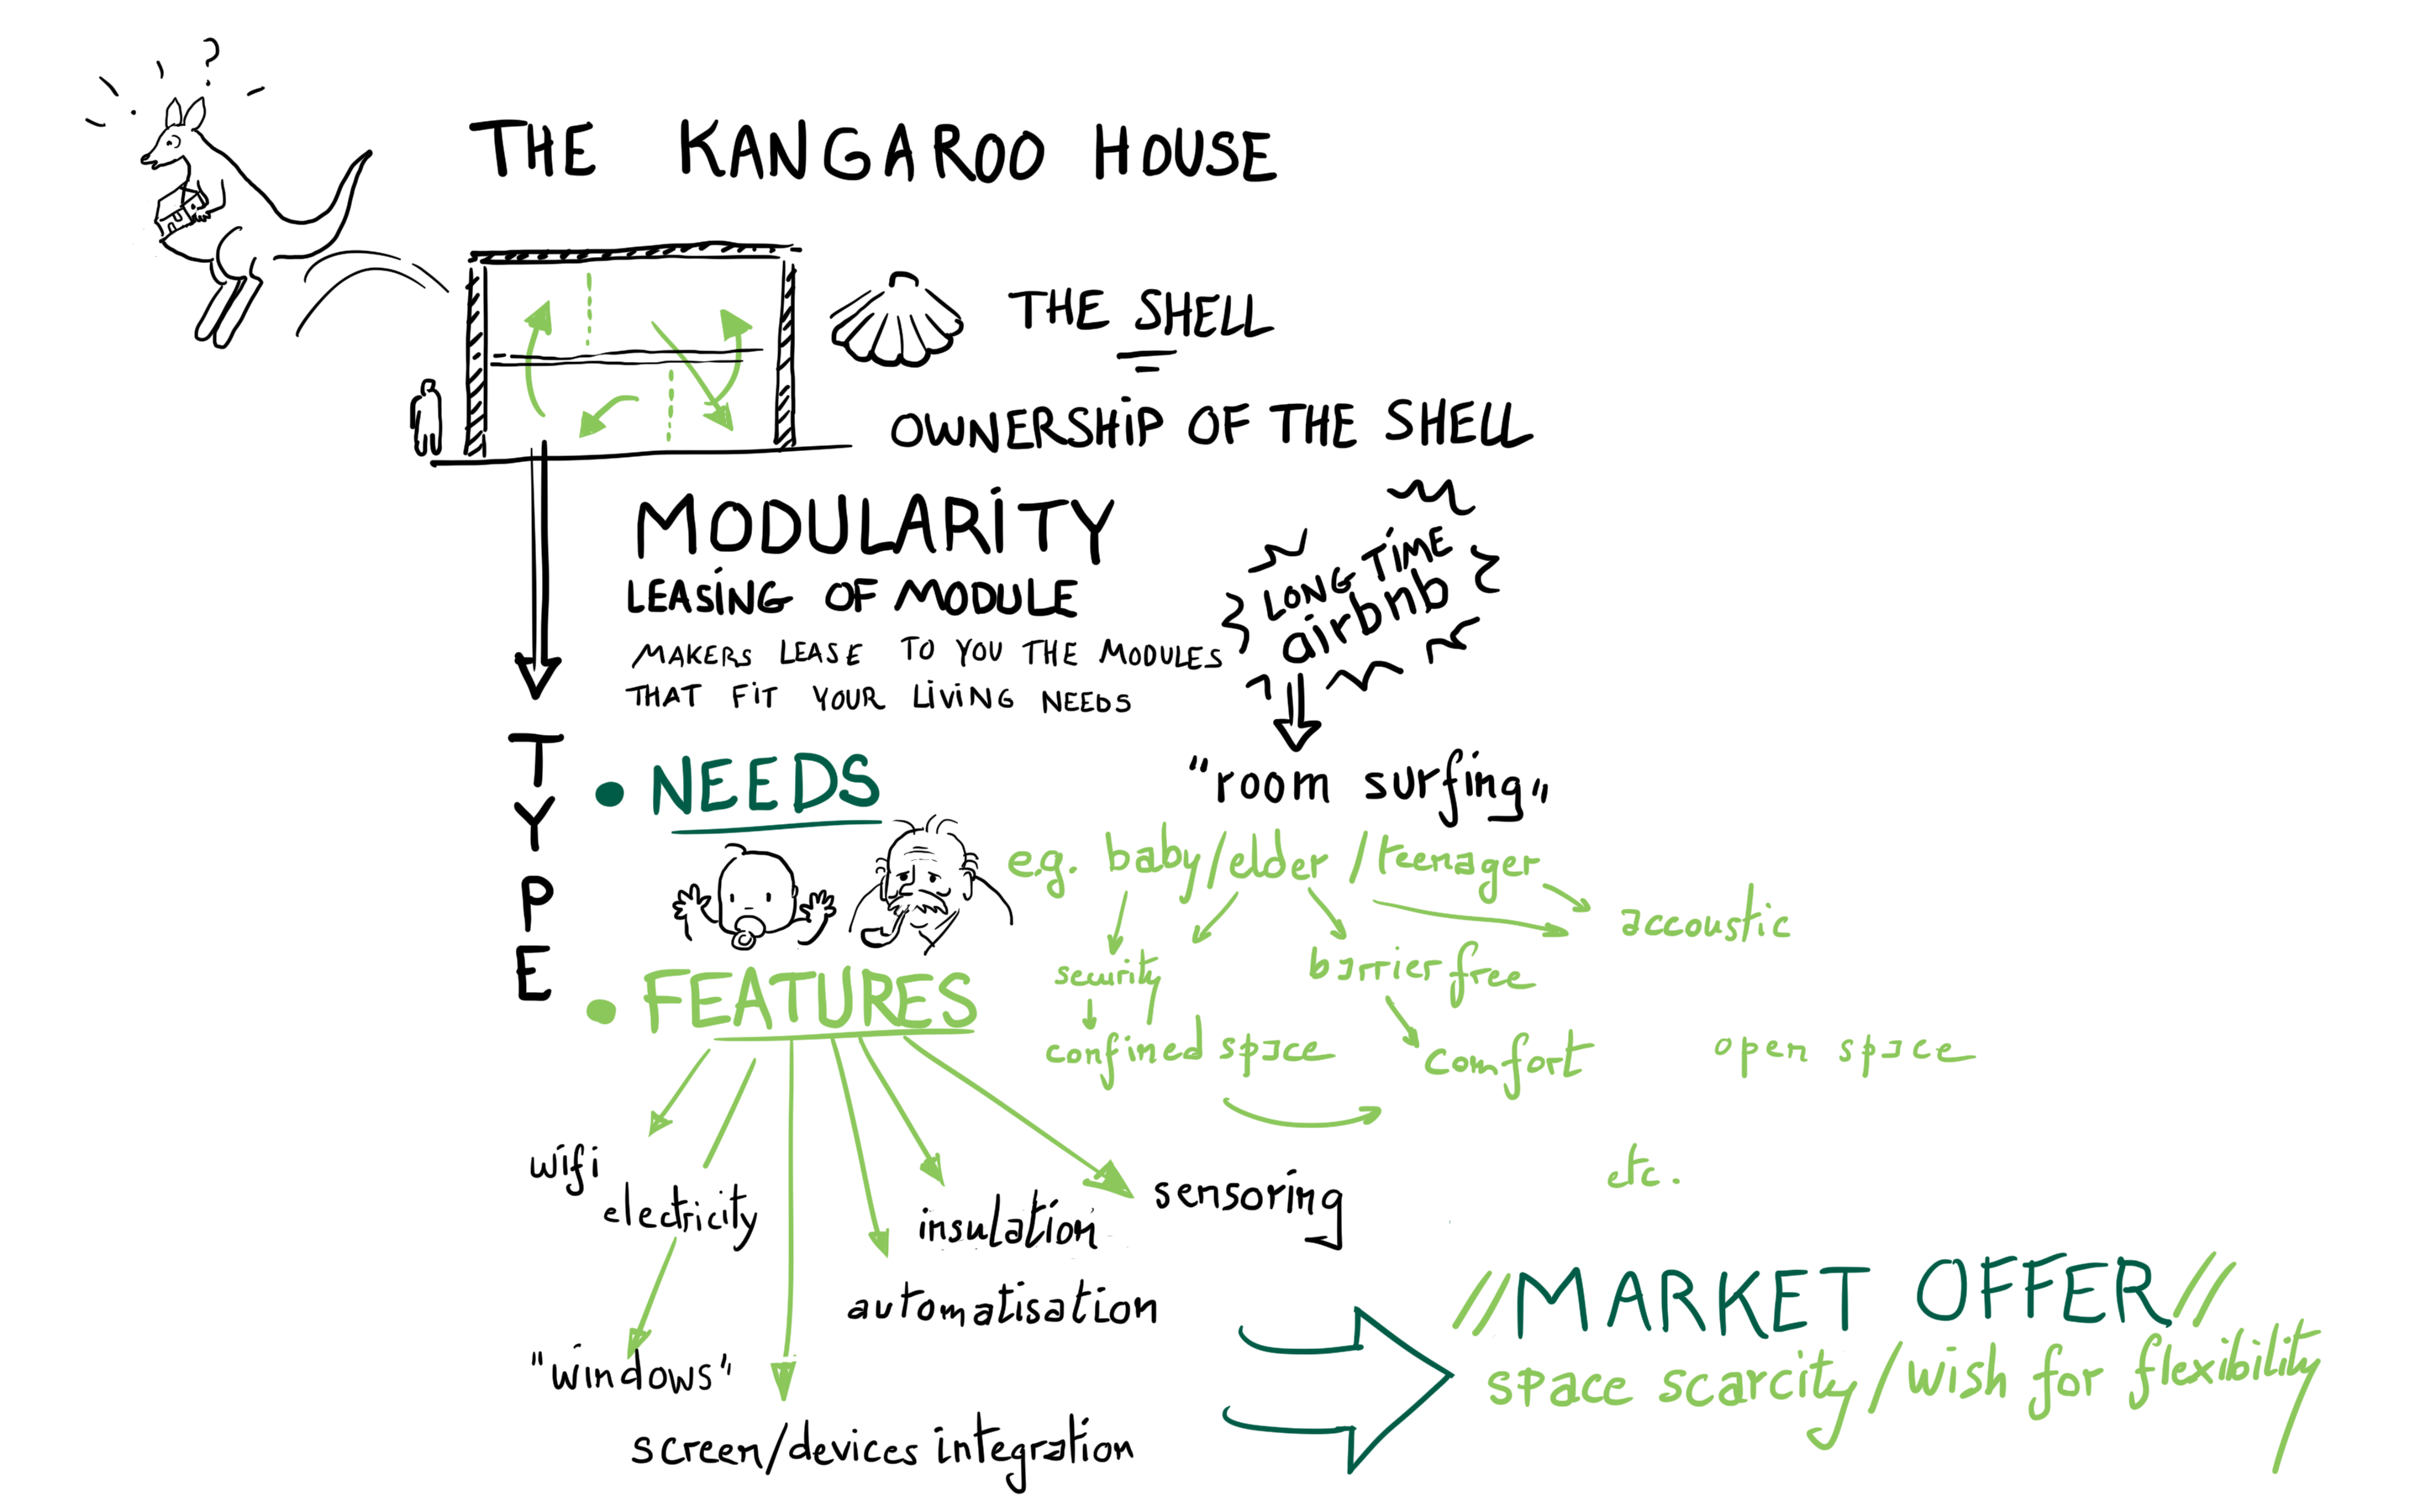 ?
THE KANGAROO HOUSE
THE SHELL
OWNERSHiP OF THE SHELL
MODULARiTY
LEASiNG OF MODULE
MAKERS LEASE TO YOU THE MODULES
THAT FiT YOUR LiViNG NEEDS
LONG TiME
airbnb
"room surfing"
TYPE
• NEEDS
e.g. baby/elder/teenager
accoustic
security
barrier free
confined space
comfort
open space
etc.
• FEATURES
wifi
electricity
"windows"
screen/devices integration
automatisation
insulation
sensoring
//MARKET OFFER//
space scarcity/wish for flexibility